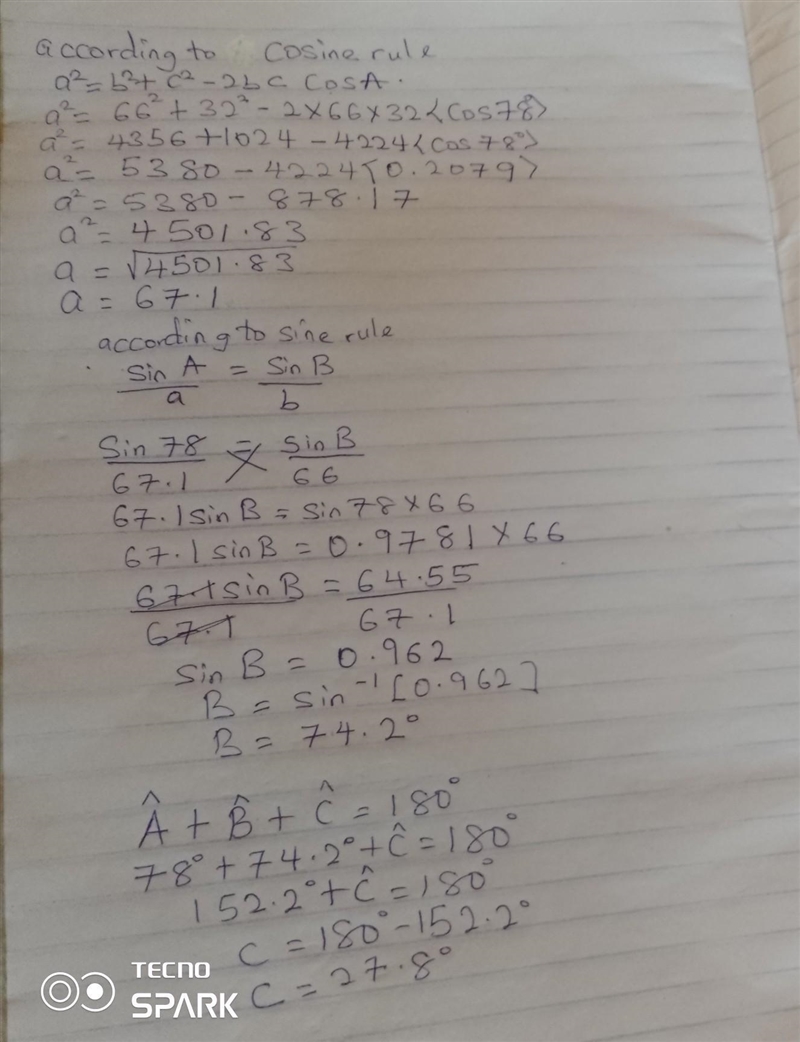 according to cosine rule
a² = b² + c² - 2bc CosA.
a² = 66² + 32² - 2×66×32<cos78°>
a² = 4356 + 1024 - 4224<cos78°>
a² = 5380 - 4224<0.2079>
a² = 5380 - 878.17
a² = 4501.83
a = √4501.83
a = 67.1
according to sine rule
Sin A = Sin B
a b
Sin 78 = Sin B
67.1 66
67.1 sin B = sin78 × 66
67.1 sin B = 0.9781 × 66
67.1 sin B = 64.55
67.1 67.1
Sin B = 0.962
B = sin⁻¹[0.962]
B = 74.2°
Â + B̂ + Ĉ = 180°
78° + 74.2° + Ĉ = 180°
152.2° + Ĉ = 180°
C = 180° - 152.2°
C = 27.8°
TECNO
SPARK